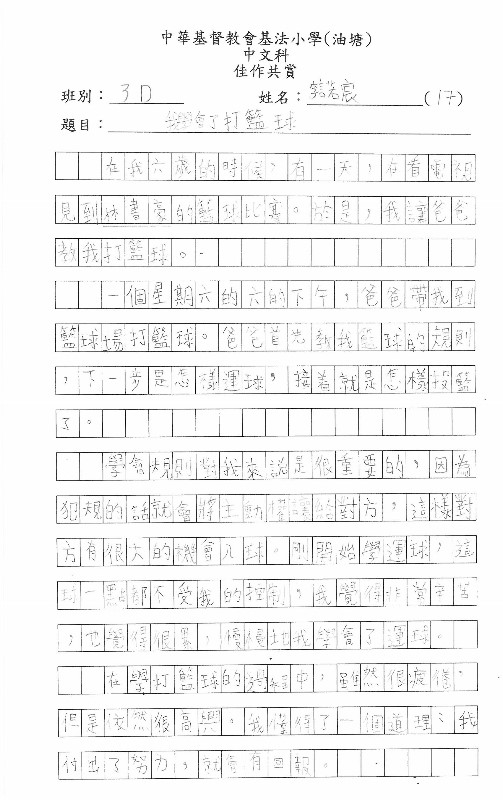 中華基督教會基法小學(油塘)
中文科
佳作共賞
班別：3D 姓名： (17)
題目：我學會了打籃球
在我六歲的時候，有一天，在看電視
見到林書豪的籃球比賽。於是，我讓爸爸
教我打籃球。
一個星期六的六的下午，爸爸帶我到
籃球場打籃球。爸爸首先教我籃球的規則
，下一步是怎樣運球，接着就是怎樣投籃
了。
學會規則對我來說是很重要的，因為
犯規的話就會將主動權讓給對方，這樣對
方有很大的機會入球。剛開始學運球，這
球一點都不受我的控制，我覺得非常辛苦
，也覺得很累，慢慢地我學會了運球。
在學打籃球的過程中，雖然很疲倦，
但是依然很高興。我懂得了一個道理：我
付出了努力，就會有回報。